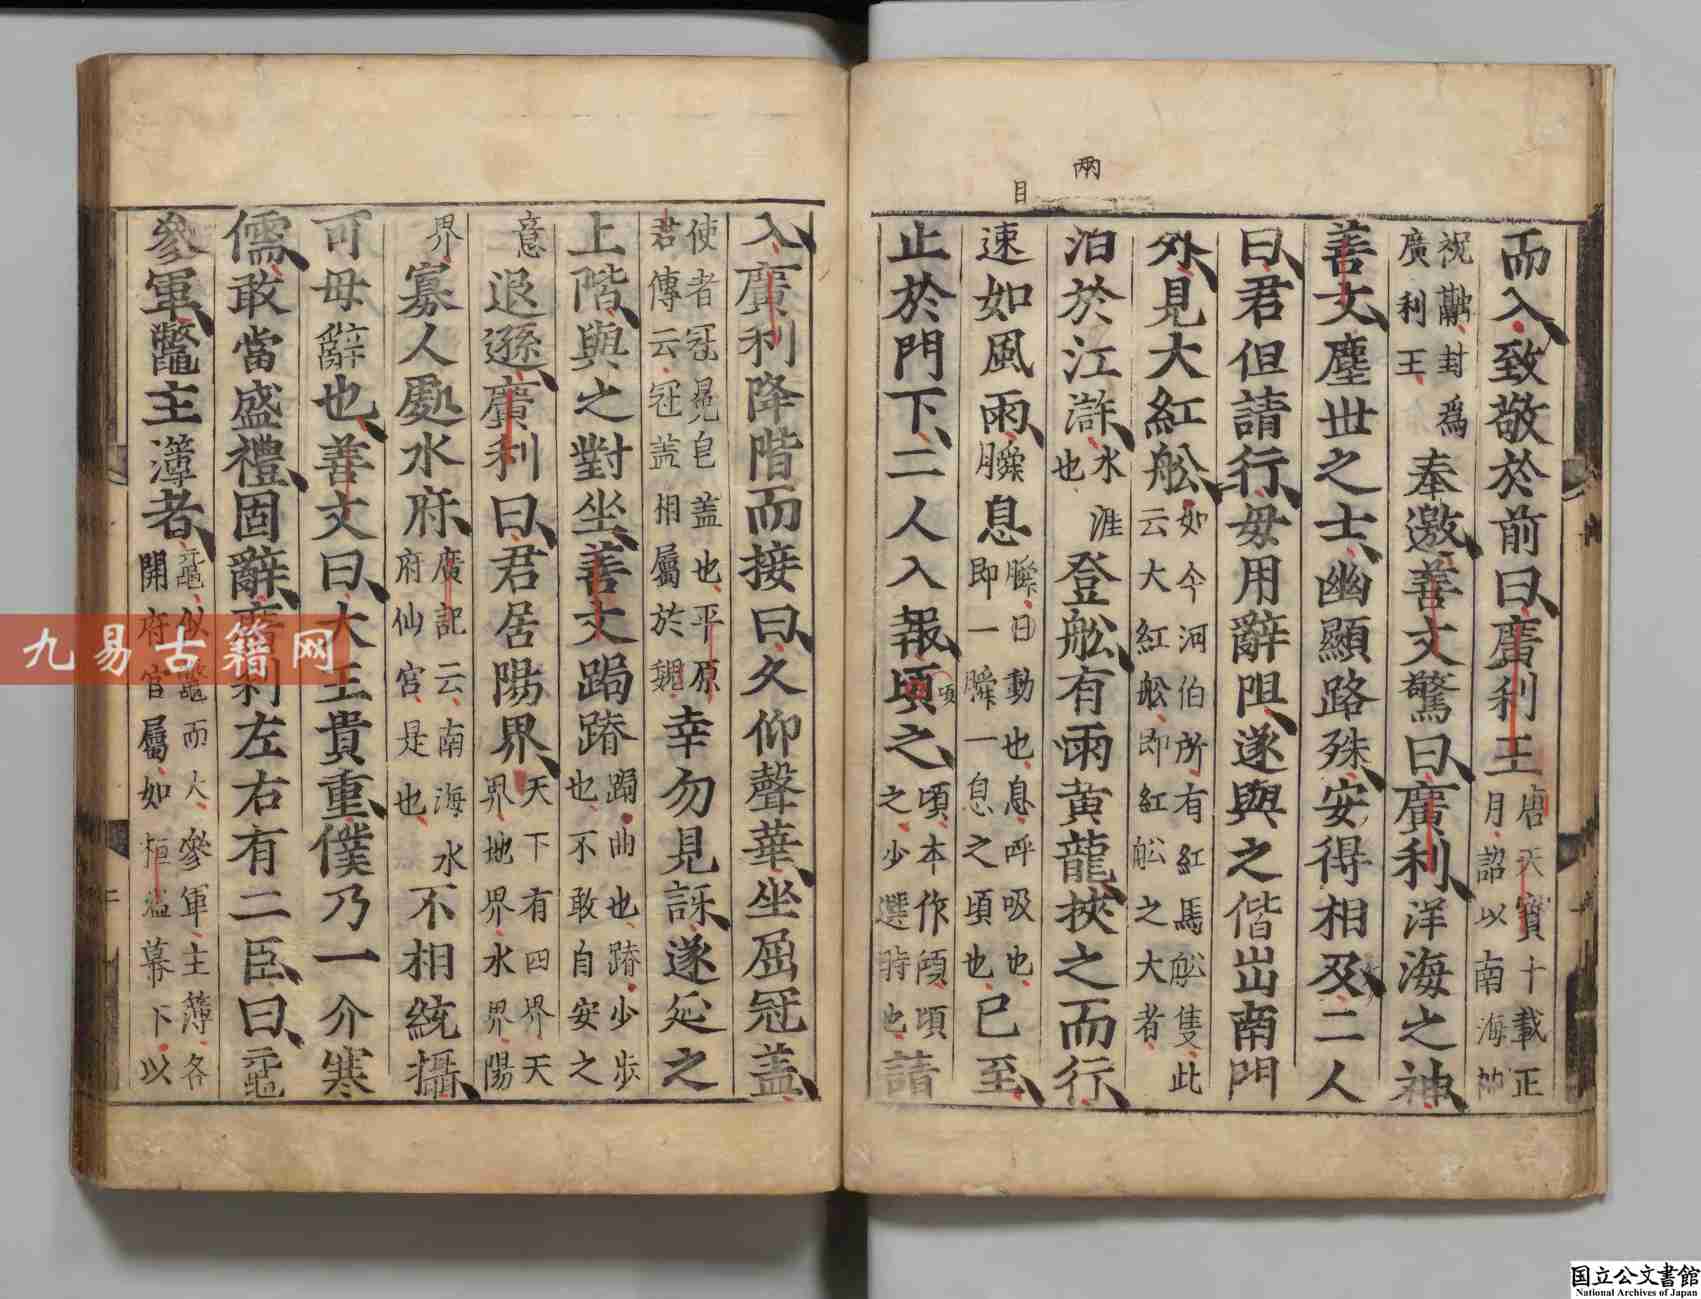 兩
目
而入致敬於前曰廣利王唐天寶十載正月詔以南海神
祝融封爲廣利王奉邀善文驚曰廣利洋海之神
善文塵世之士幽顯路殊安得相及二人
曰君但請行毋用辭阻遂與之偕出南門
外見大紅舩如今河伯所有紅馬舩隻此云大紅舩即紅舩之大者
泊於江滸水涯也登舩有雨黄龍挾之而行
速如風雨瞬息瞬日動也息呼吸也即一瞬一息之頃也已至
止於門下二人入報頃之頃本作傾頃之少選時也請
入廣利降階而接曰久仰聲華坐屈冠盖
使者冠冕皂盖也平原君傳云冠盖相屬於魏幸勿見訝遂延之
上階與之對坐善文跼蹐跼曲也蹐少步也不敢自安之
意退遜廣利曰君居陽界天下有四界天界地界水界陽
界寡人處水府廣記云南海水府仙宮是也不相統攝
可毋辭也善文曰大王貴重僕乃一介寒
儒敢當盛禮固辭廣利左右有二臣曰黿
參軍鼈主簿者黿似鼈而大參軍主簿各開府官屬如桓溫幕下以
九易古籍网
国立公文書館
National Archives of Japan